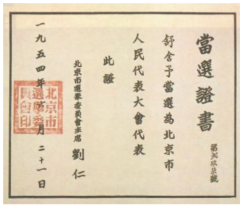 當選證書
第 號
舒舍予當選為北京市
人民代表大會代表
此證
北京市選舉委員會主席 劉仁
一九五四年 月二十一日
北京市選舉委員會印